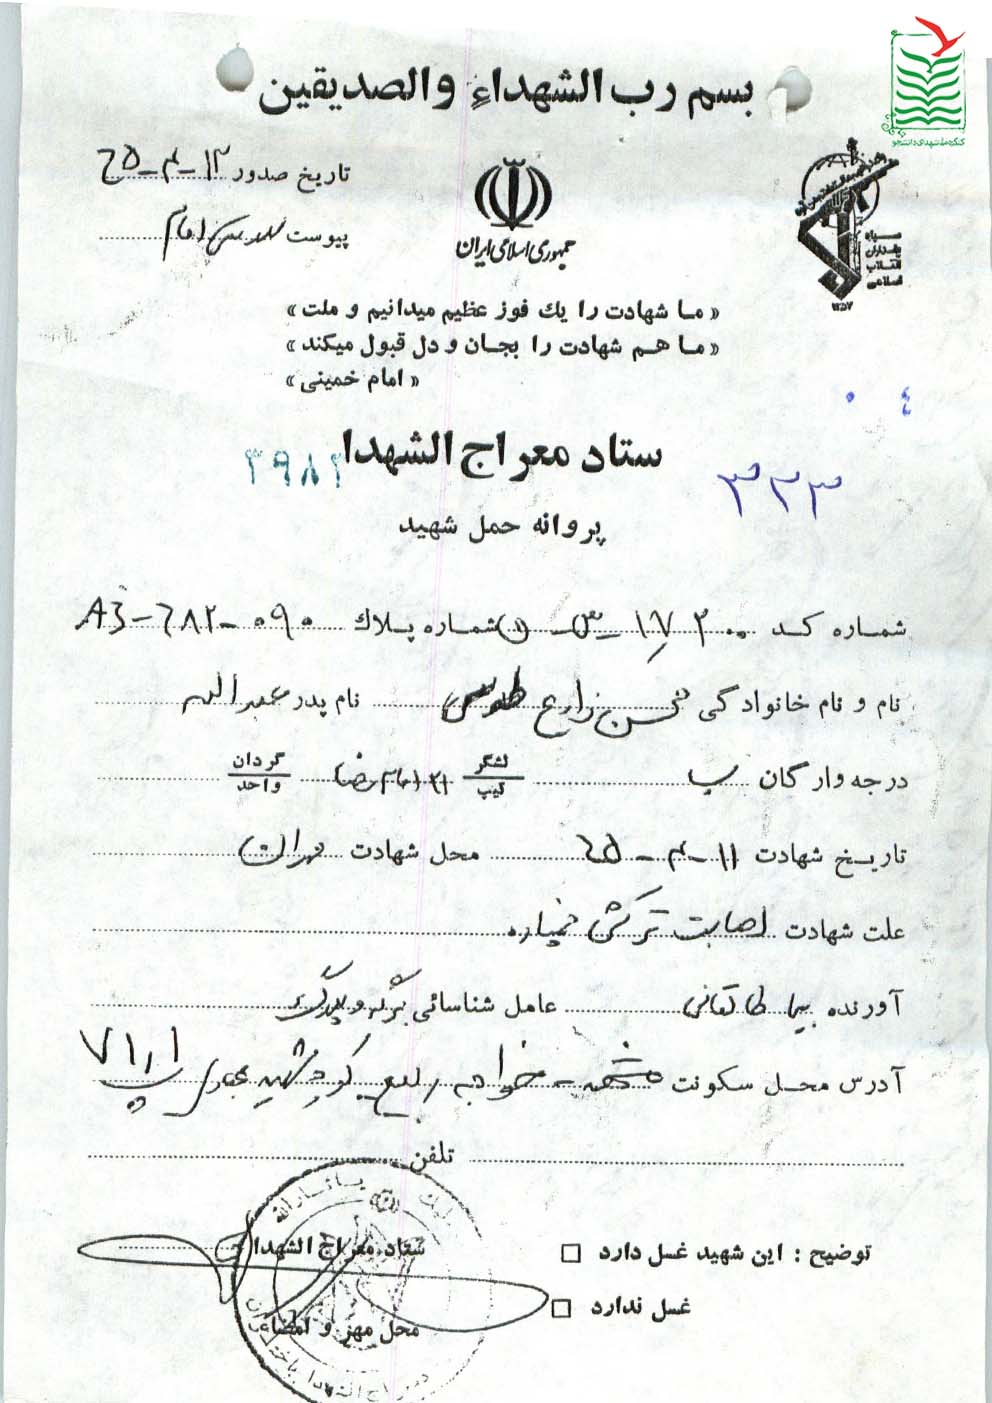 کنگره ملی شهدای دانشجو
بسم رب الشهداءِ والصدیقین
تاریخ صدور ۱۲-۴-۶۵
پیوست
جمهوری اسلامی ایران
سپاه
پاسداران
انقلاب
اسلامی
۱۳۵۷
« ما شهادت را یك فوز عظیم میدانیم و ملت »
« ما هم شهادت را بجان و دل قبول میکند »
« امام خمینی »
۰ ٤
ستاد معراج الشهدا
۳۹۸۲ ۳۳۳
پروانه حمل شهید
شماره کد شماره پلاك A3-682-090
نام و نام خانوادگی نام پدر عبداله
درجه وارگان ب لشگر تیپ ۲۱ امام رضا گردان واحد
تاریخ شهادت ۱۱-۴-۶۵ محل شهادت مهران
علت شهادت اصابت ترکش خمپاره
آورنده عامل شناسائی
آدرس محل سکونت مشهد - خواجه ربیع کوچه شهید پ ۷۱/۱
تلفن
توضیح : این شهید غسل دارد □
غسل ندارد □
ستاد معراج الشهدا
محل مهر و امضاء